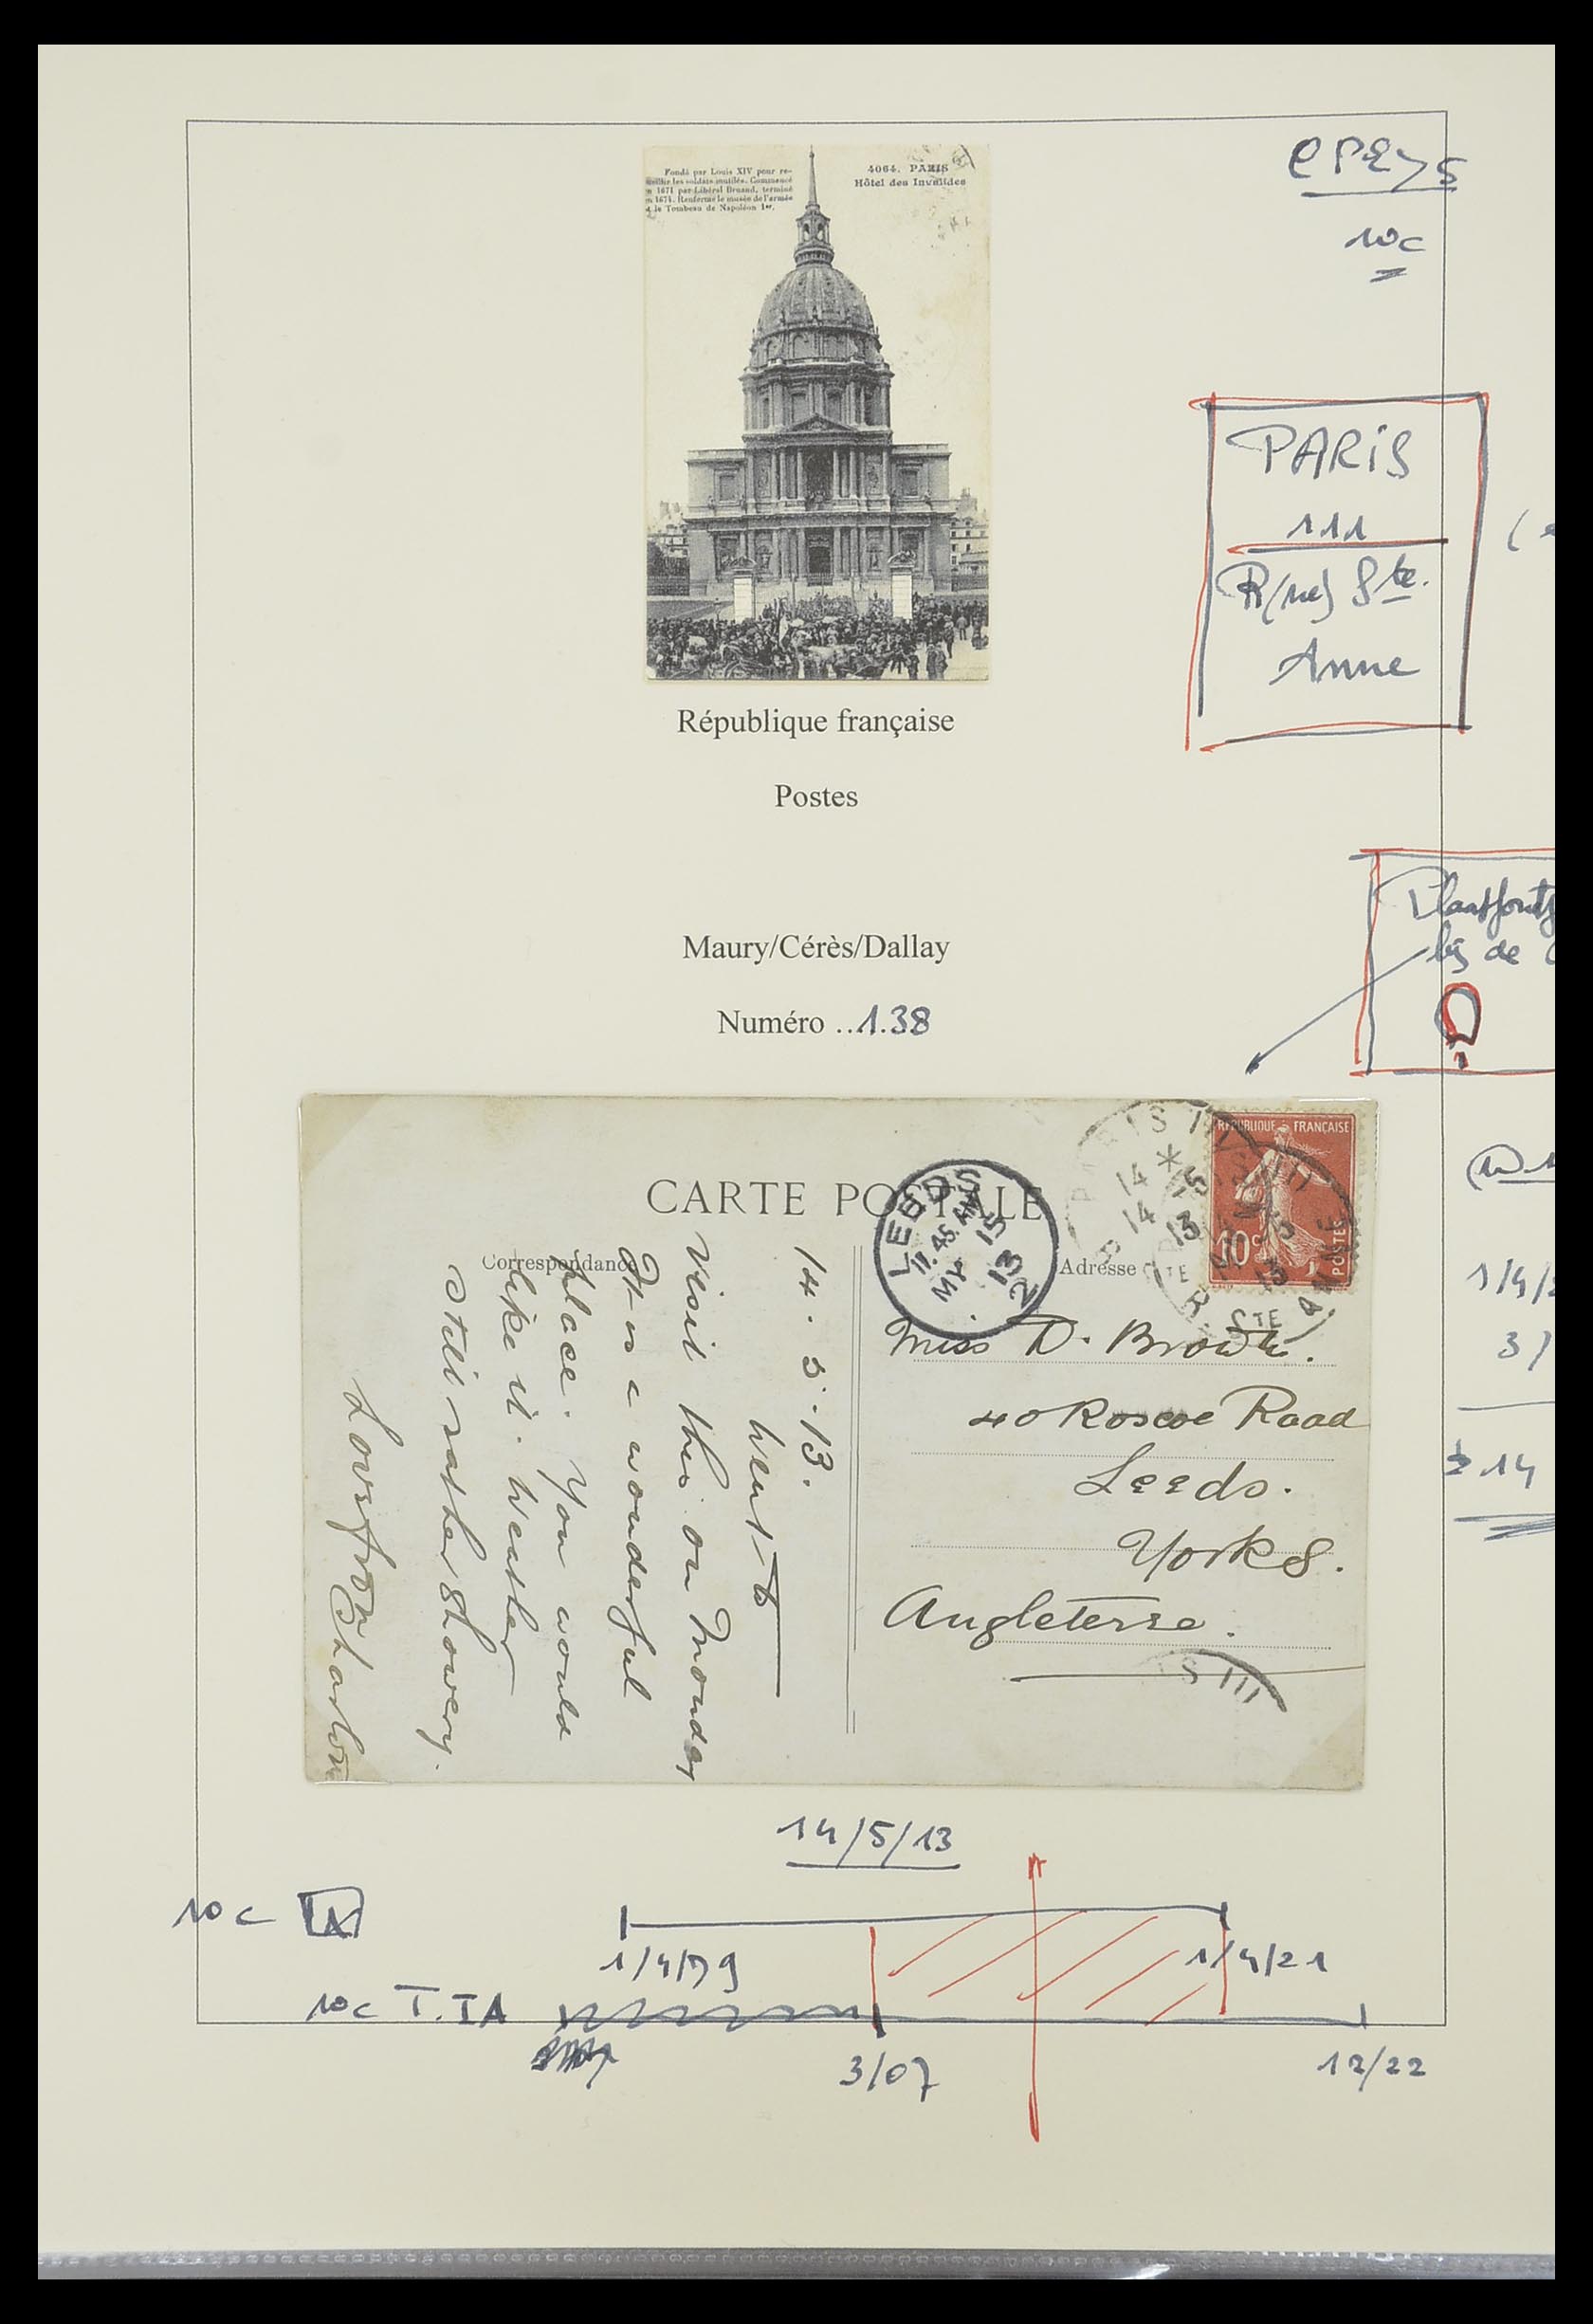 CP2475
10c
Fondé par Louis XIV pour re-
cueillir les soldats mutilés. Commencé
en 1671 par Libéral Bruand, terminé
en 1674. Renferme le musée de l'armée
et le Tombeau de Napoléon 1er.
4064. PARIS
Hôtel des Invalides
PARiS
111
R(ue) Ste.
Anne
République française
Postes
Maury/Cérès/Dallay
Numéro ..138
bis de
?
1/4/2
3/
14
CARTE POSTALE
Correspondance
Adresse
LEEDS
11.45 AM
MY 15
13
2
PARIS III
14 * 14 -5 13
R. STE ANNE
RÉPUBLIQUE FRANÇAISE
10c
POSTES
Miss D. Brown.
40 Roscoe Road
Leeds.
Yorks.
Angleterre.
IS III
14.5.13.
Went to
visit this on Monday
It is a wonderful
place. You would
like it. Weather
still rather showery.
Love from Charlow
14/5/13
10c
1/4/79
1/4/21
10c T.IA
3/07
12/22